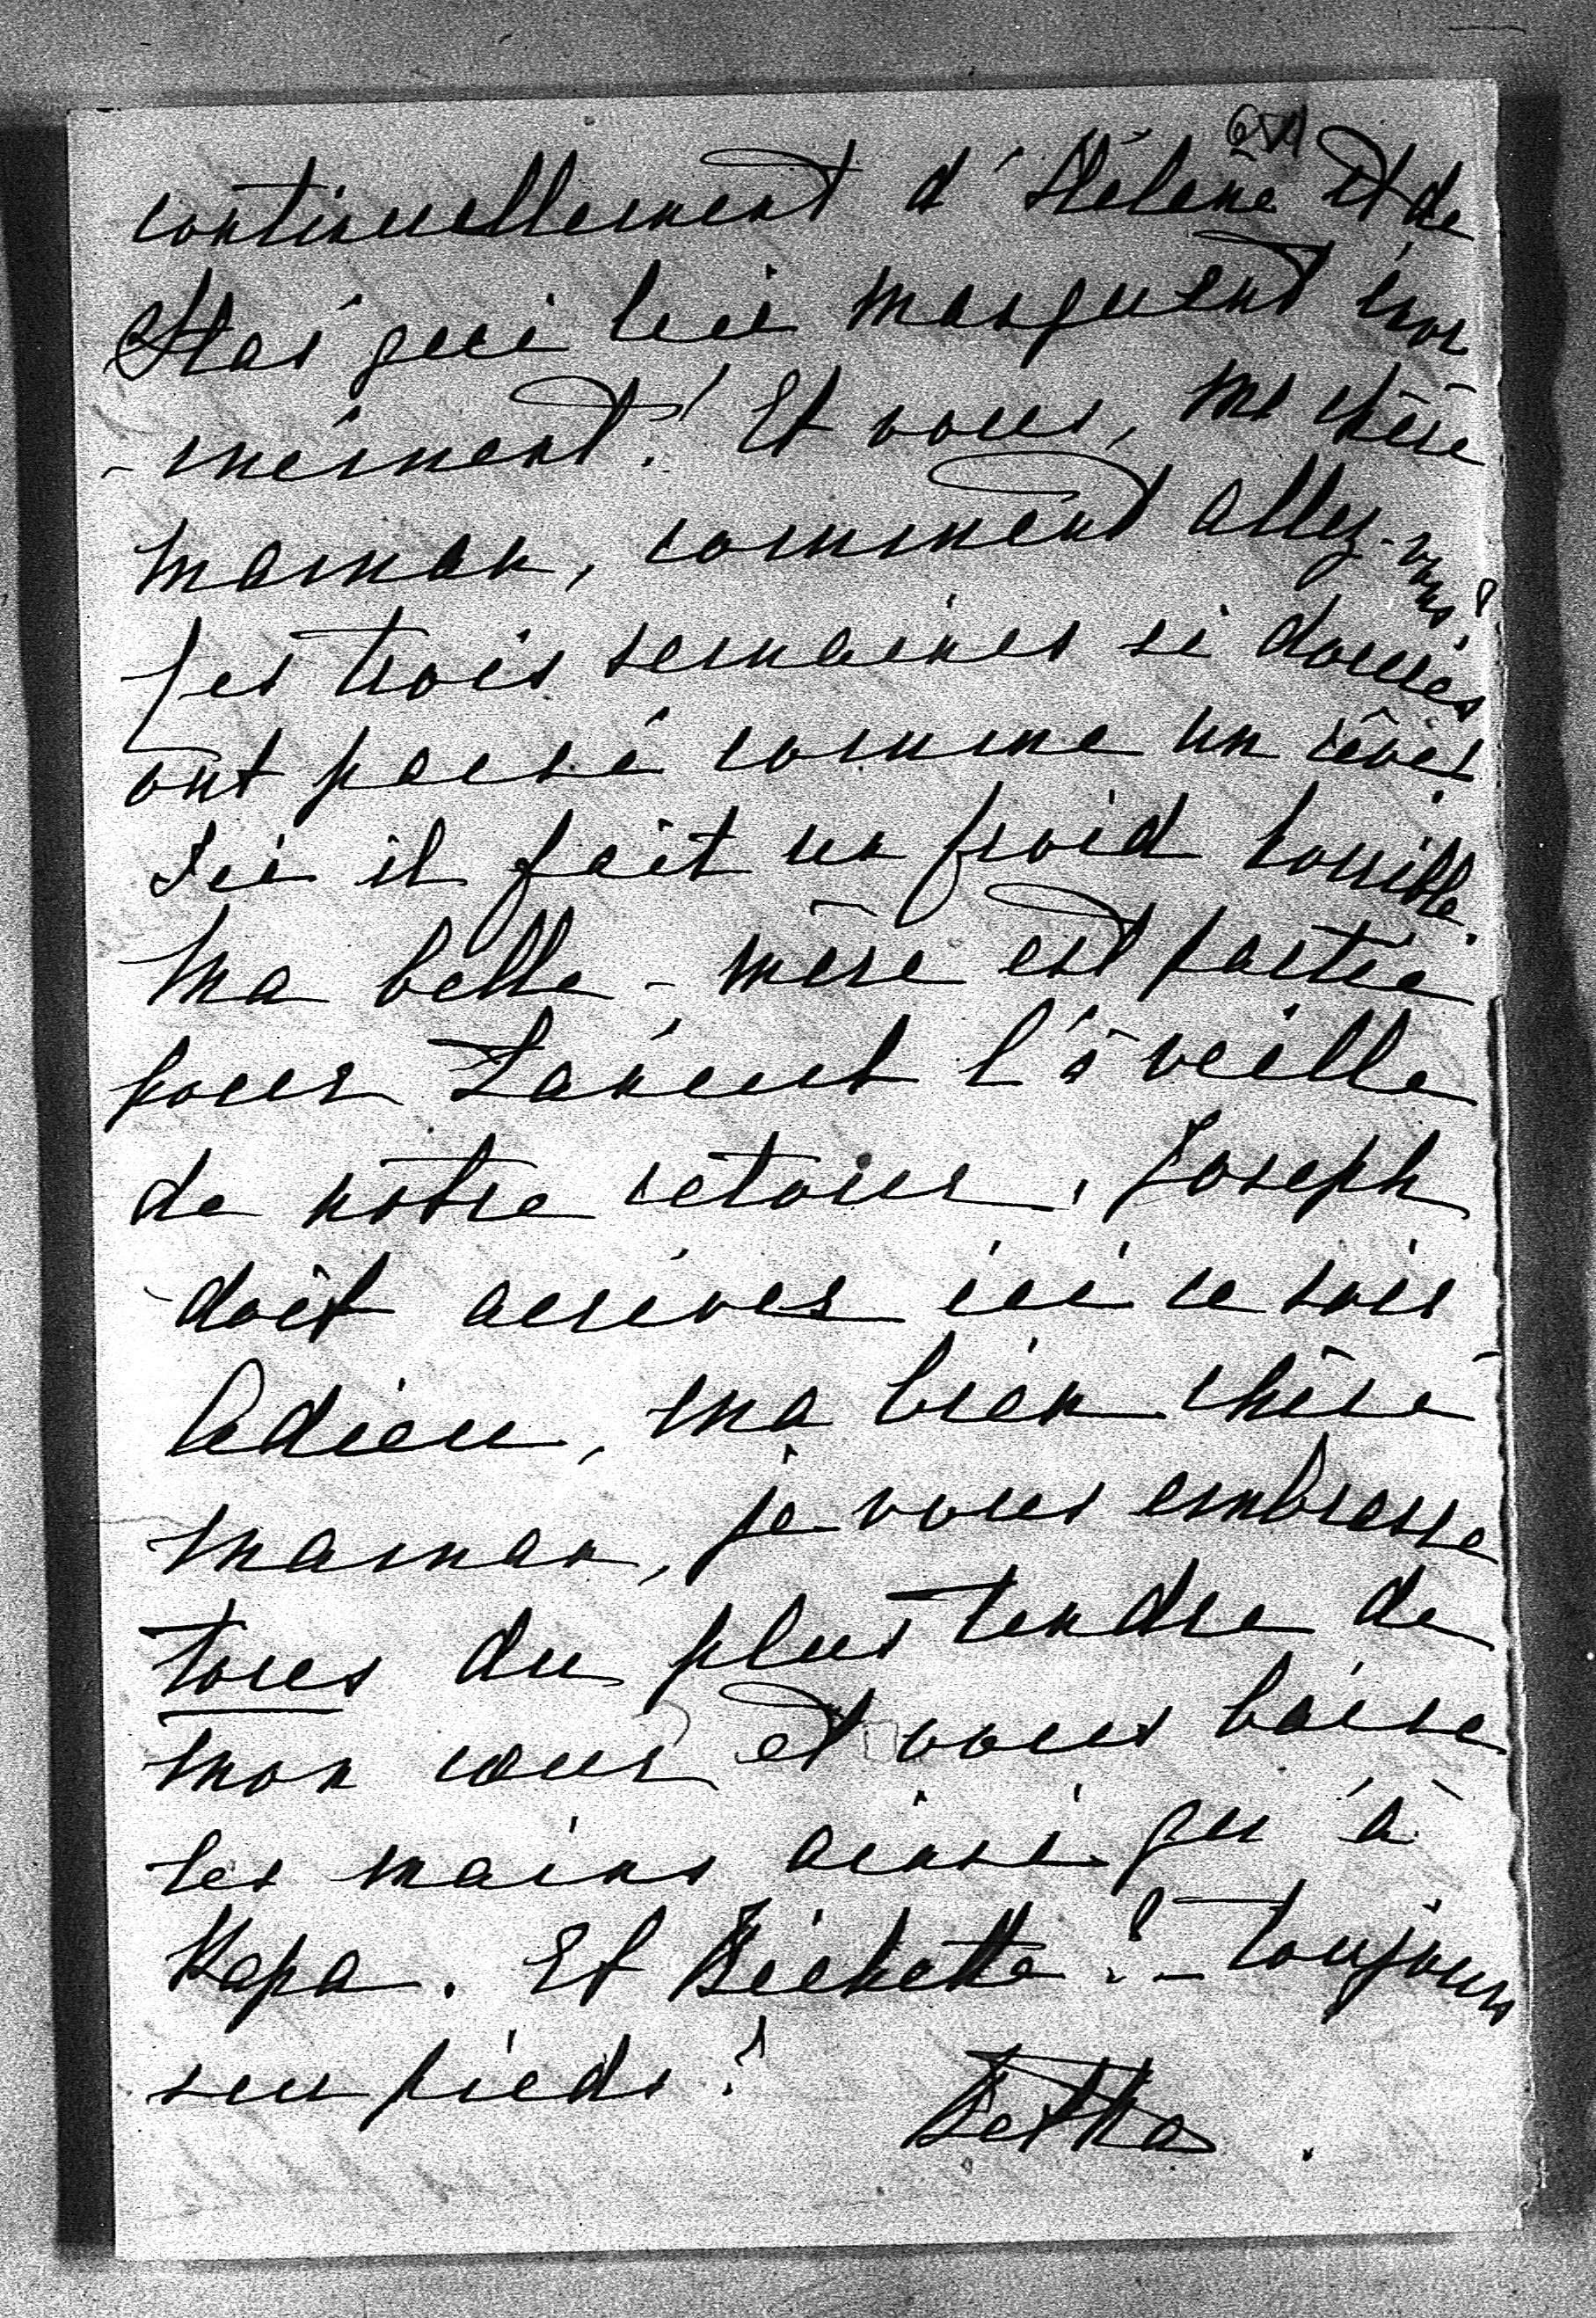 continuellement d'Hélène et de
Stas qui lui manquent énor
-mément! Et vous, ma chère
maman, comment allez-vous?
Ces trois semaines si douces
ont passé comme un rêve.
Ici il fait un froid horrible.
Ma belle-mère est partie
pour Łańcut l'à veille
de notre retour. Joseph
doit arriver ici ce soir
Adieu, ma bien chère
maman, je vous embrasse
tous du plus tendre de
mon cœur et vous baise
les mains ainsi qu'à
Papa. Et Bichette? - toujours
sur pieds?
Betka.